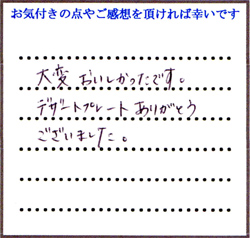 お気付きの点やご感想を頂ければ幸いです
大変 おいしかったです。
デザートプレート ありがとう
ございました。